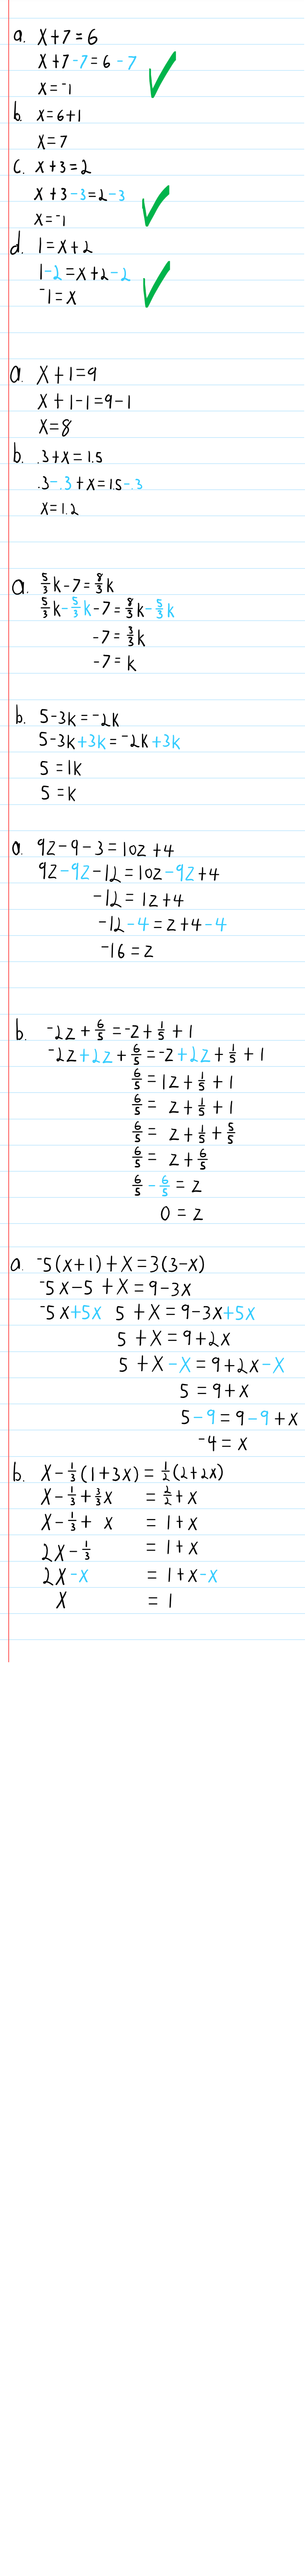 a. x+7=6
x+7-7=6-7
x=⁻1
b. x=6+1
x=7
c. x+3=2
x+3-3=2-3
x=⁻1
d. 1=x+2
1-2=x+2-2
⁻1=x
a. x+1=9
x+1-1=9-1
x=8
b. .3+x=1.5
.3-.3+x=1.5-.3
x=1.2
a. 5/3k-7=8/3k
5/3k-5/3k-7=8/3k-5/3k
-7=3/3k
-7=k
b. 5-3k=⁻2k
5-3k+3k=⁻2k+3k
5=1k
5=k
a. 9z-9-3=10z+4
9z-9z-12=10z-9z+4
-12=1z+4
-12-4=z+4-4
⁻16=z
b. ⁻2z+6/5=-z+1/5+1
⁻2z+2z+6/5=-z+2z+1/5+1
6/5=1z+1/5+1
6/5= z+1/5+1
6/5= z+1/5+5/5
6/5= z+6/5
6/5-6/5=z
0=z
a. ⁻5(x+1)+x=3(3-x)
⁻5x-5+x=9-3x
⁻5x+5x 5+x=9-3x+5x
5+x=9+2x
5+x-x=9+2x-x
5=9+x
5-9=9-9+x
⁻4=x
b. x-1/3(1+3x)=1/2(2+2x)
x-1/3+3/3x =2/2+x
x-1/3+ x =1+x
2x-1/3 =1+x
2x-x =1+x-x
x =1